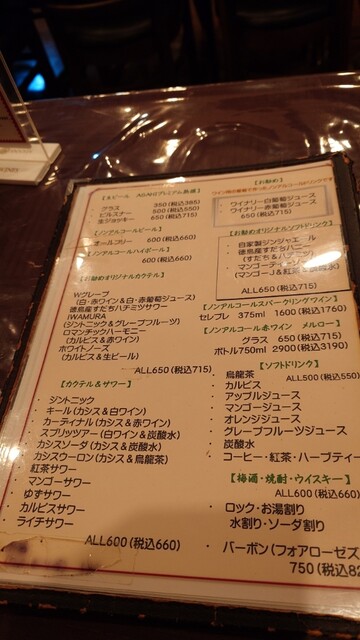 【生ビール ASAHIプレミアム熟撰】
・グラス 350(税込385)
・ピルスナー 500(税込550)
・生ジョッキー 650(税込715)
【ノンアルコールビール】
・オールフリー 600(税込660)
【ノンアルコールハイボール】
600(税込660)
【お勧めオリジナルカクテル】
・Wグレープ
(白・赤ワイン&白・赤葡萄ジュース)
・徳島産すだちハチミツサワー
・IWAMURA
(ジントニック&グレープフルーツ)
・ロマンチックハーモニー
(カルピス&赤ワイン)
・ホワイトノーズ
(カルピス&生ビール)
ALL650(税込715)
【カクテル&サワー】
・ジントニック
・キール(カシス&白ワイン)
・カーディナル(カシス&赤ワイン)
・スプリッツアー(白ワイン&炭酸水)
・カシスソーダ(カシス&炭酸水)
・カシスウーロン(カシス&烏龍茶)
・紅茶サワー
・マンゴーサワー
・ゆずサワー
・カルピスサワー
・ライチサワー
ALL600(税込660)
【お勧め】
・ワイナリー白葡萄ジュース
・ワイナリー赤葡萄ジュース
650(税込715)
【お勧めオリジナルソフトドリンク】
・自家製ジンジャエール
・徳島産すだちハニー
(すだち&ハチミツ)
・マンゴーティー
(マンゴーJ&紅茶&炭酸水)
ALL650(税込715)
【ノンアルコールスパークリングワイン】
セレブレ 375ml 1600(税込1760)
【ノンアルコール赤ワイン メルロー】
・グラス 650(税込715)
・ボトル750ml 2900(税込3190)
【ソフトドリンク】
・烏龍茶 ALL500(税込550)
・カルピス
・アップルジュース
・マンゴージュース
・オレンジジュース
・グレープフルーツジュース
・炭酸水
・コーヒー・紅茶・ハーブティー
【梅酒・焼酎・ウイスキー】
ALL600(税込660)
・ロック・お湯割り
水割り・ソーダ割り
・バーボン(フォアローゼス)
750(税込82